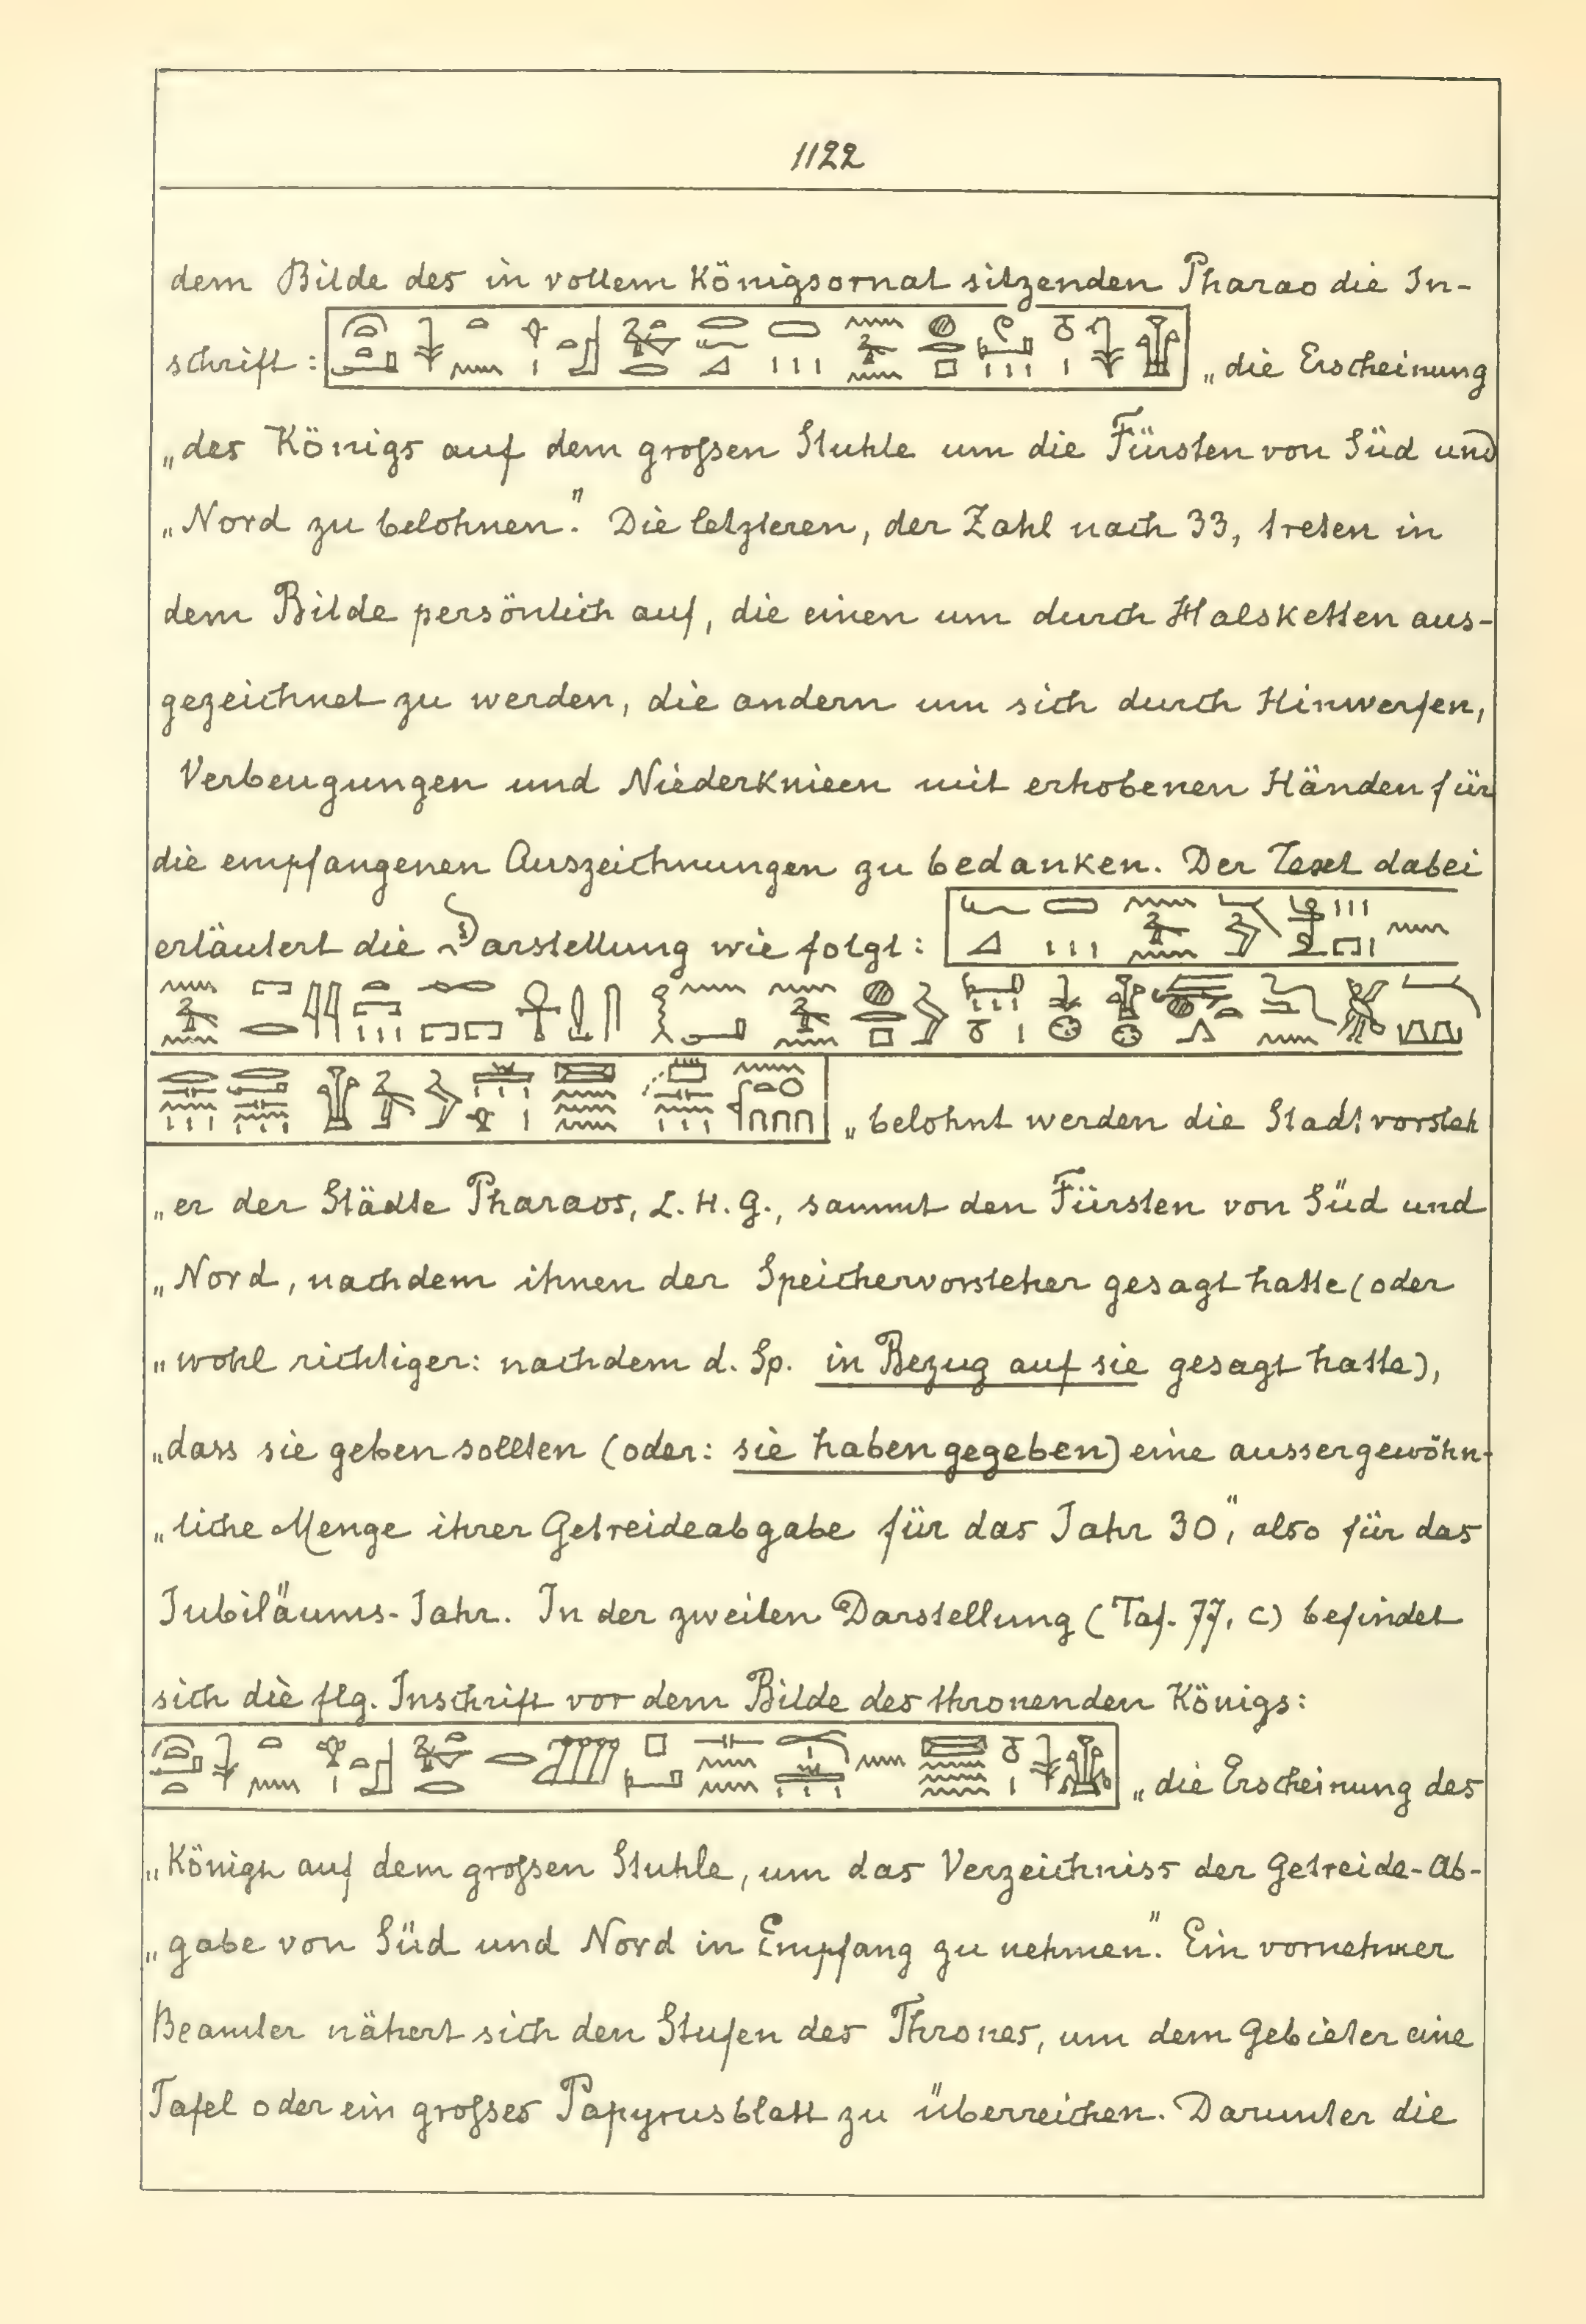 1122
dem Bilde des in vollem Königsornat sitzenden Pharao die In-
schrift: „die Erscheinung
„des Königs auf dem grossen Stuhle um die Fürsten von Süd und
„Nord zu belohnen". Die letzteren, der Zahl nach 33, treten in
dem Bilde persönlich auf, die einen um durch Halsketten aus-
gezeichnet zu werden, die andern um sich durch Hinwerfen,
Verbeugungen und Niederknieen mit erhobenen Händen für
die empfangenen Auszeichnungen zu bedanken. Der Text dabei
erläutert die Darstellung wie folgt:
„belohnt werden die Stadtvorsteh
„er der Städte Pharaos, L. H. G., sammt den Fürsten von Süd und
„Nord, nachdem ihnen der Speichervorsteher gesagt hatte (oder
„wohl richtiger: nachdem d. Sp. in Bezug auf sie gesagt hatte),
„dass sie geben sollten (oder: sie haben gegeben) eine aussergewöhn-
„liche Menge ihrer Getreideabgabe für das Jahr 30", also für das
Jubiläums-Jahr. In der zweiten Darstellung (Taf. 77, c) befindet
sich die flg. Inschrift vor dem Bilde des thronenden Königs:
„die Erscheinung des
„Königs auf dem grossen Stuhle, um das Verzeichniss der Getreide-Ab-
„gabe von Süd und Nord in Empfang zu nehmen". Ein vornehmer
Beamter nähert sich den Stufen des Thrones, um dem Gebieter eine
Tafel oder ein grosses Papyrusblatt zu überreichen. Darunter die